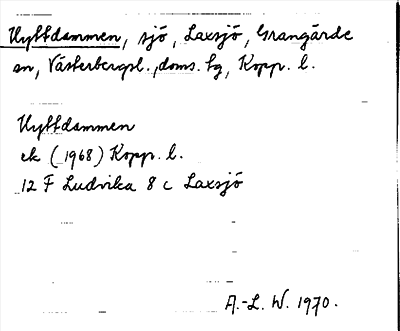 Hyttdammen, sjö, Laxsjö, Grangärde
sn, Västerbergsl., doms. fg, Kopp. l.
Hyttdammen
ek (1968) Kopp. l.
12 F Ludvika 8 c Laxsjö
A.-L. W. 1970.